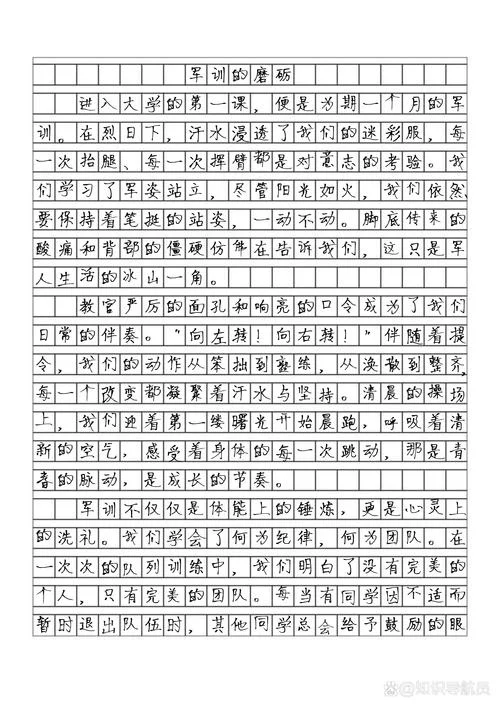 军训的磨砺
进入大学的第一课，便是为期一个月的军
训。在烈日下，汗水浸透了我们的迷彩服，每
一次抬腿、每一次挥臂都是对意志的考验。我
们学习了军姿站立，尽管阳光如火，我们依然
要保持着笔挺的站姿，一动不动。脚底传来的
酸痛和背部的僵硬仿佛在告诉我们，这只是军
人生活的冰山一角。
教官严厉的面孔和响亮的口令成为了我们
日常的伴奏。“向左转！向右转！”伴随着提
令，我们的动作从笨拙到熟练，从涣散到整齐，
每一个改变都凝聚着汗水与坚持。清晨的操场
上，我们迎着第一缕曙光开始晨跑，呼吸着清
新的空气，感受着身体的每一次跳动，那是青
春的脉动，是成长的节奏。
军训不仅仅是体能上的锤炼，更是心灵上
的洗礼。我们学会了何为纪律，何为团队。在
一次次的队列训练中，我们明白了没有完美的
个人，只有完美的团队。每当有同学因不适而
暂时退出队伍时，其他同学总会给予鼓励的眼
@知识导航员